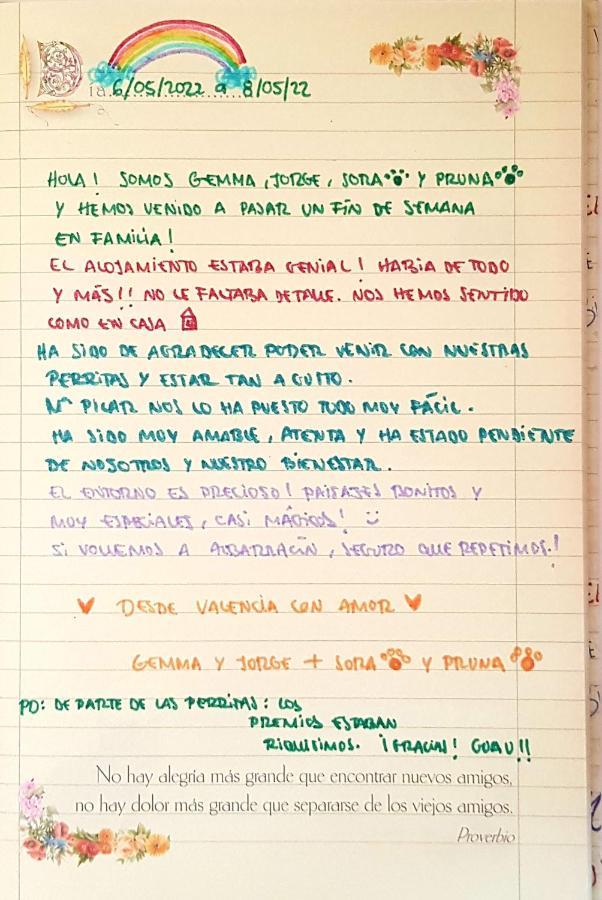 Día 6/05/2022 a 8/05/22
HOLA! SOMOS GEMMA, JORGE, SORA Y PRUNA
Y HEMOS VENIDO A PASAR UN FIN DE SEMANA
EN FAMILIA!
EL ALOJAMIENTO ESTABA GENIAL! HABIA DE TODO
Y MÁS!! NO LE FALTABA DETALLE. NOS HEMOS SENTIDO
COMO EN CASA
HA SIDO DE AGRADECER PODER VENIR CON NUESTRAS
PERRITAS Y ESTAR TAN A GUSTO.
Mª PILAR NOS LO HA PUESTO TODO MUY FÁCIL.
HA SIDO MUY AMABLE, ATENTA Y HA ESTADO PENDIENTE
DE NOSOTROS Y NUESTRO BIENESTAR.
EL ENTORNO ES PRECIOSO! PAISAJES BONITOS Y
MUY ESPECIALES, CASI MÁGICOS! :)
SI VOLVEMOS A ALBARRACÍN, SEGURO QUE REPETIMOS!
♥ DESDE VALENCIA CON AMOR ♥
GEMMA Y JORGE + SORA Y PRUNA
PD: DE PARTE DE LAS PERRITAS: LOS
PREMIOS ESTABAN
RIQUISIMOS. ¡GRACIAS! GUAU!!
No hay alegría más grande que encontrar nuevos amigos,
no hay dolor más grande que separarse de los viejos amigos.
Proverbio